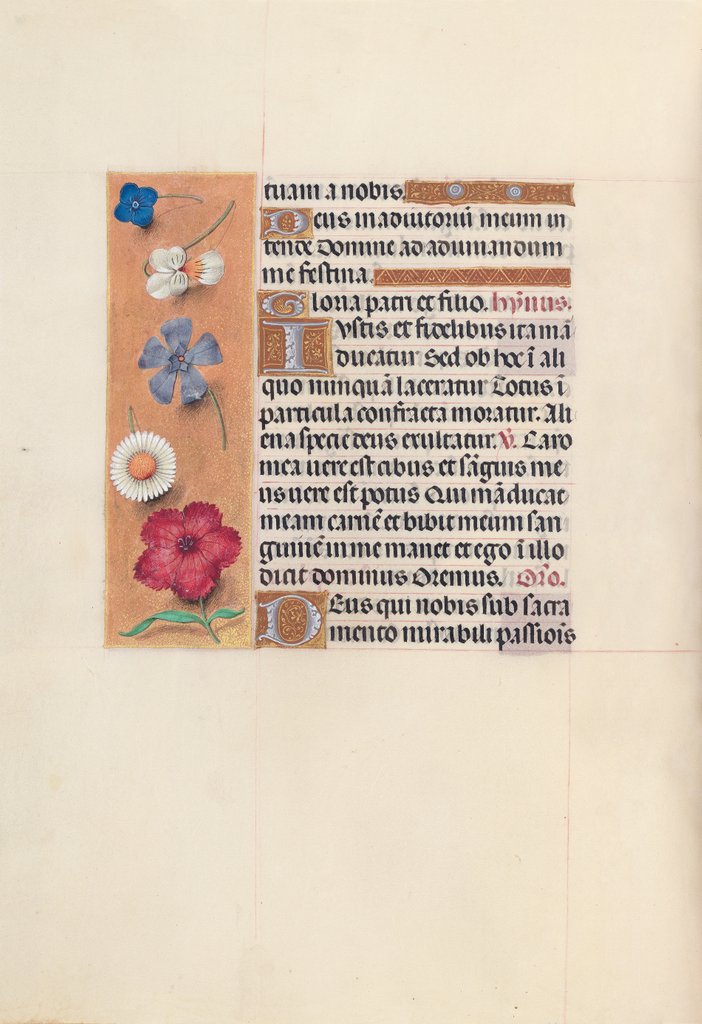 tuam a nobis.
Deus in adiutoriū meum in
tende Domine ad adiuuandum
me festina.
Gloria patri et filio. hÿmus.
Iustis et fidelibus ita mā
ducatur Sed ob hoc ī ali
quo nunquā laceratur Totus ī
particula confracta moratur. Ali
ena specie deus exultatur. V̄. Caro
mea uere est cibus et sāguis me
us uere est potus Qui māducat
meam carnē et bibit meum san
guinē in me manet et ego ī illo
dicit dominus Oremus. Oro.
Deus qui nobis sub sacra
mento mirabili passiois